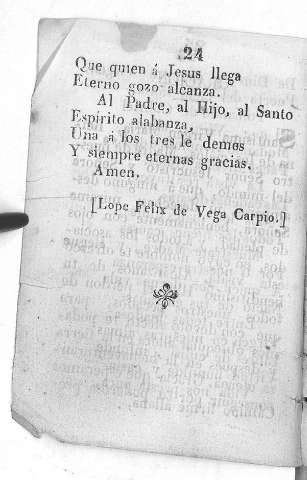 24
Que quien á Jesus llega
Eterno gozo alcanza.
Al Padre, al Hijo, al Santo
Espirito alabanza,
Una a los tres le demos
Y siempre eternas gracias.
Amen.
[Lope Felix de Vega Carpio.]